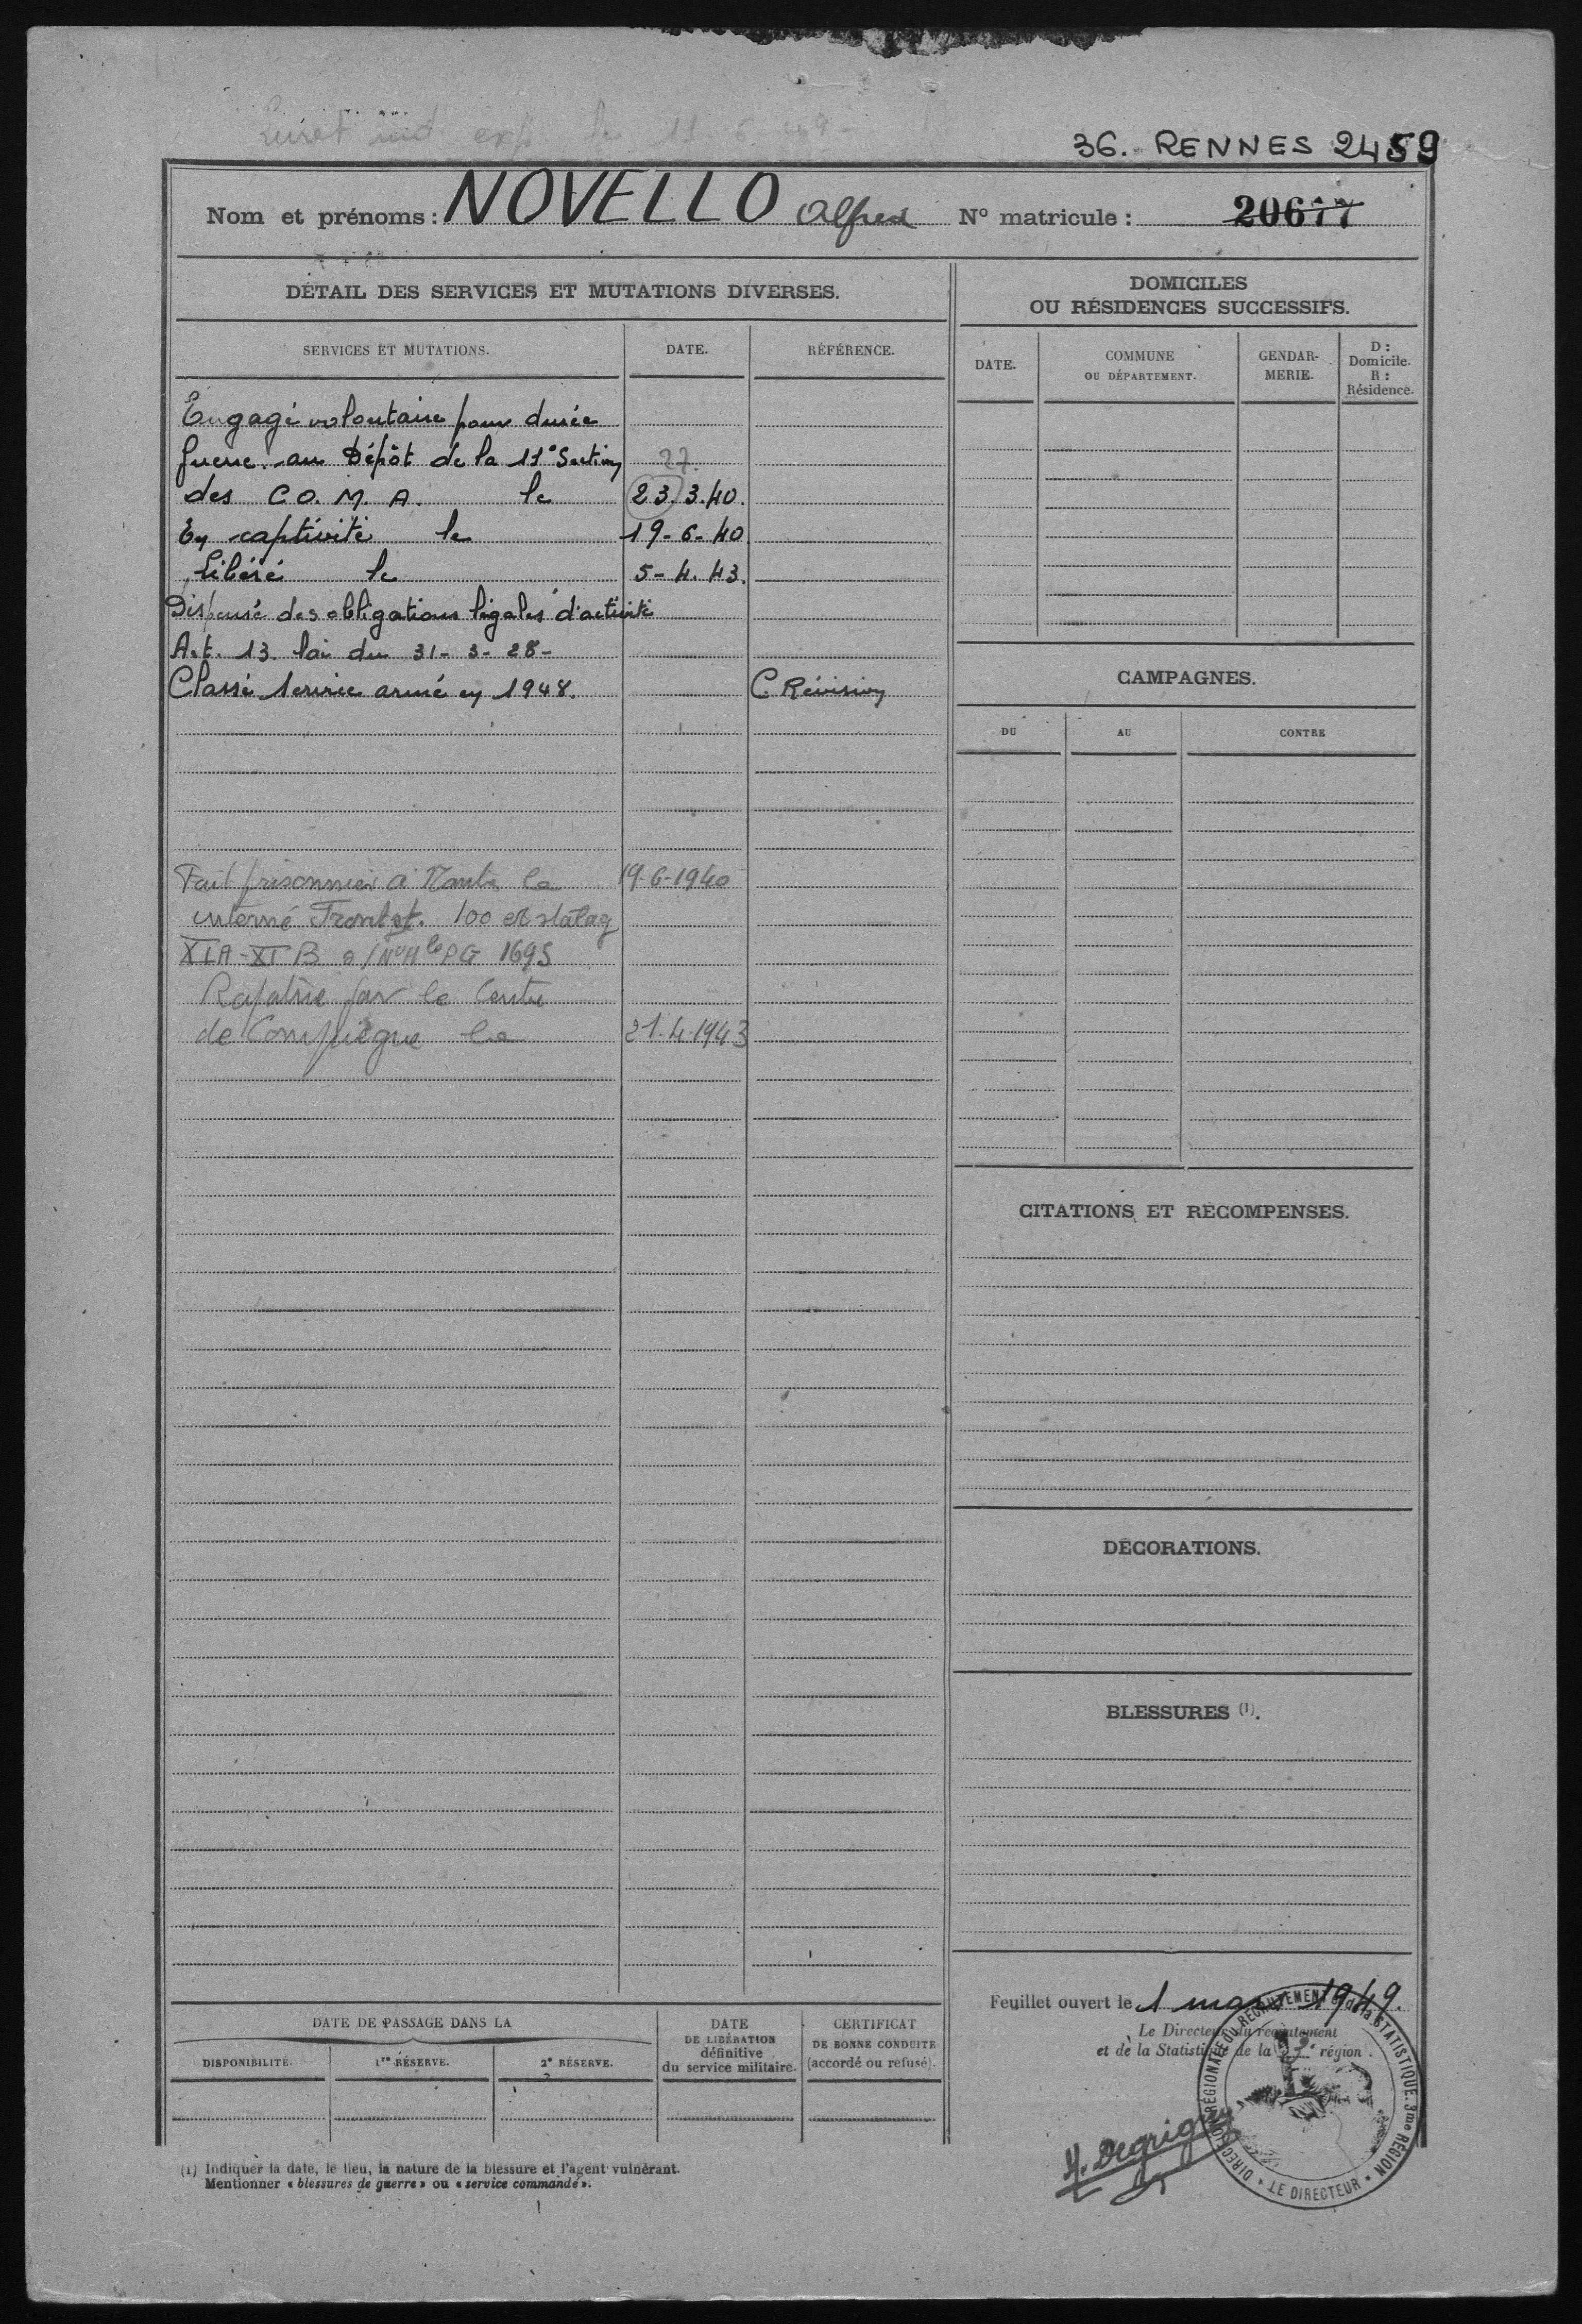 Livret ind exp le 11-6-49-
36. RENNES 2459
Nom et prénoms : NOVELLO Alfred N° matricule : 20677
DÉTAIL DES SERVICES ET MUTATIONS DIVERSES.
SERVICES ET MUTATIONS. DATE. RÉFÉRENCE.
Engagé volontaire pour durée
guerre au Dépôt de la 11° Section 27.
des C.O.M.A. le 23.3.40.
En captivité le 19-6-40
Libéré le 5-4.43.
Dispensé des obligations légales d'activité
Art. 13. loi du 31-3-28-
Classé service armé en 1948. C. Révision
Fait prisonnier à Nantes le 19-6-1940
interné Frontst. 100 et stalag
XIA-XIB PG 1695
Rapatrié par le Centre
de Compiègne le 21-4-1943
DATE DE PASSAGE DANS LA
DISPONIBILITÉ. 1re RÉSERVE. 2e RÉSERVE.
DATE
DE LIBÉRATION
définitive
du service militaire.
CERTIFICAT
DE BONNE CONDUITE
(accordé ou refusé).
(1) Indiquer la date, le lieu, la nature de la blessure et l'agent vulnérant.
Mentionner « blessures de guerre » ou « service commandé ».
DOMICILES
OU RÉSIDENCES SUCCESSIFS.
DATE.
COMMUNE
OU DÉPARTEMENT.
GENDAR-
MERIE.
D :
Domicile.
R :
Résidence.
CAMPAGNES.
DU AU CONTRE
CITATIONS ET RÉCOMPENSES.
DÉCORATIONS.
BLESSURES (1).
Feuillet ouvert le 1 mars 1949.
Le Directeur du recrutement
et de la Statistique de la 3e région.
DIRECTION RÉGIONALE DU RECRUTEMENT et de la STATISTIQUE. 3me RÉGION
LE DIRECTEUR